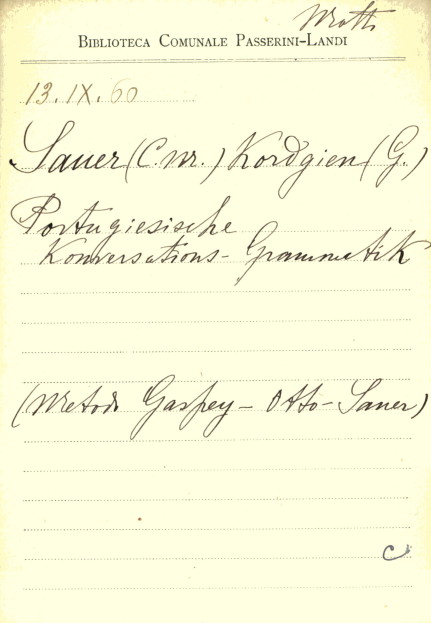 Motti
BIBLIOTECA COMUNALE PASSERINI-LANDI
13.IX.60
Sauer (C. M.) Kordgien (G.)
Portugiesische
Konversations-Grammatik
(Metodo Gaspey - Otto - Sauer)
C